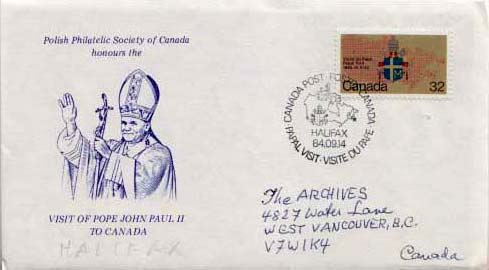 Polish Philatelic Society of Canada
honours the
VISIT OF POPE JOHN PAUL II
TO CANADA
HALIFAX
Canada 32
CANADA POST · POSTES CANADA
HALIFAX
84.09.14
PAPAL VISIT · VISITE DU PAPE
The ARCHIVES
4827 Water Lane
WEST VANCOUVER, B.C.
V7W1K4
Canada